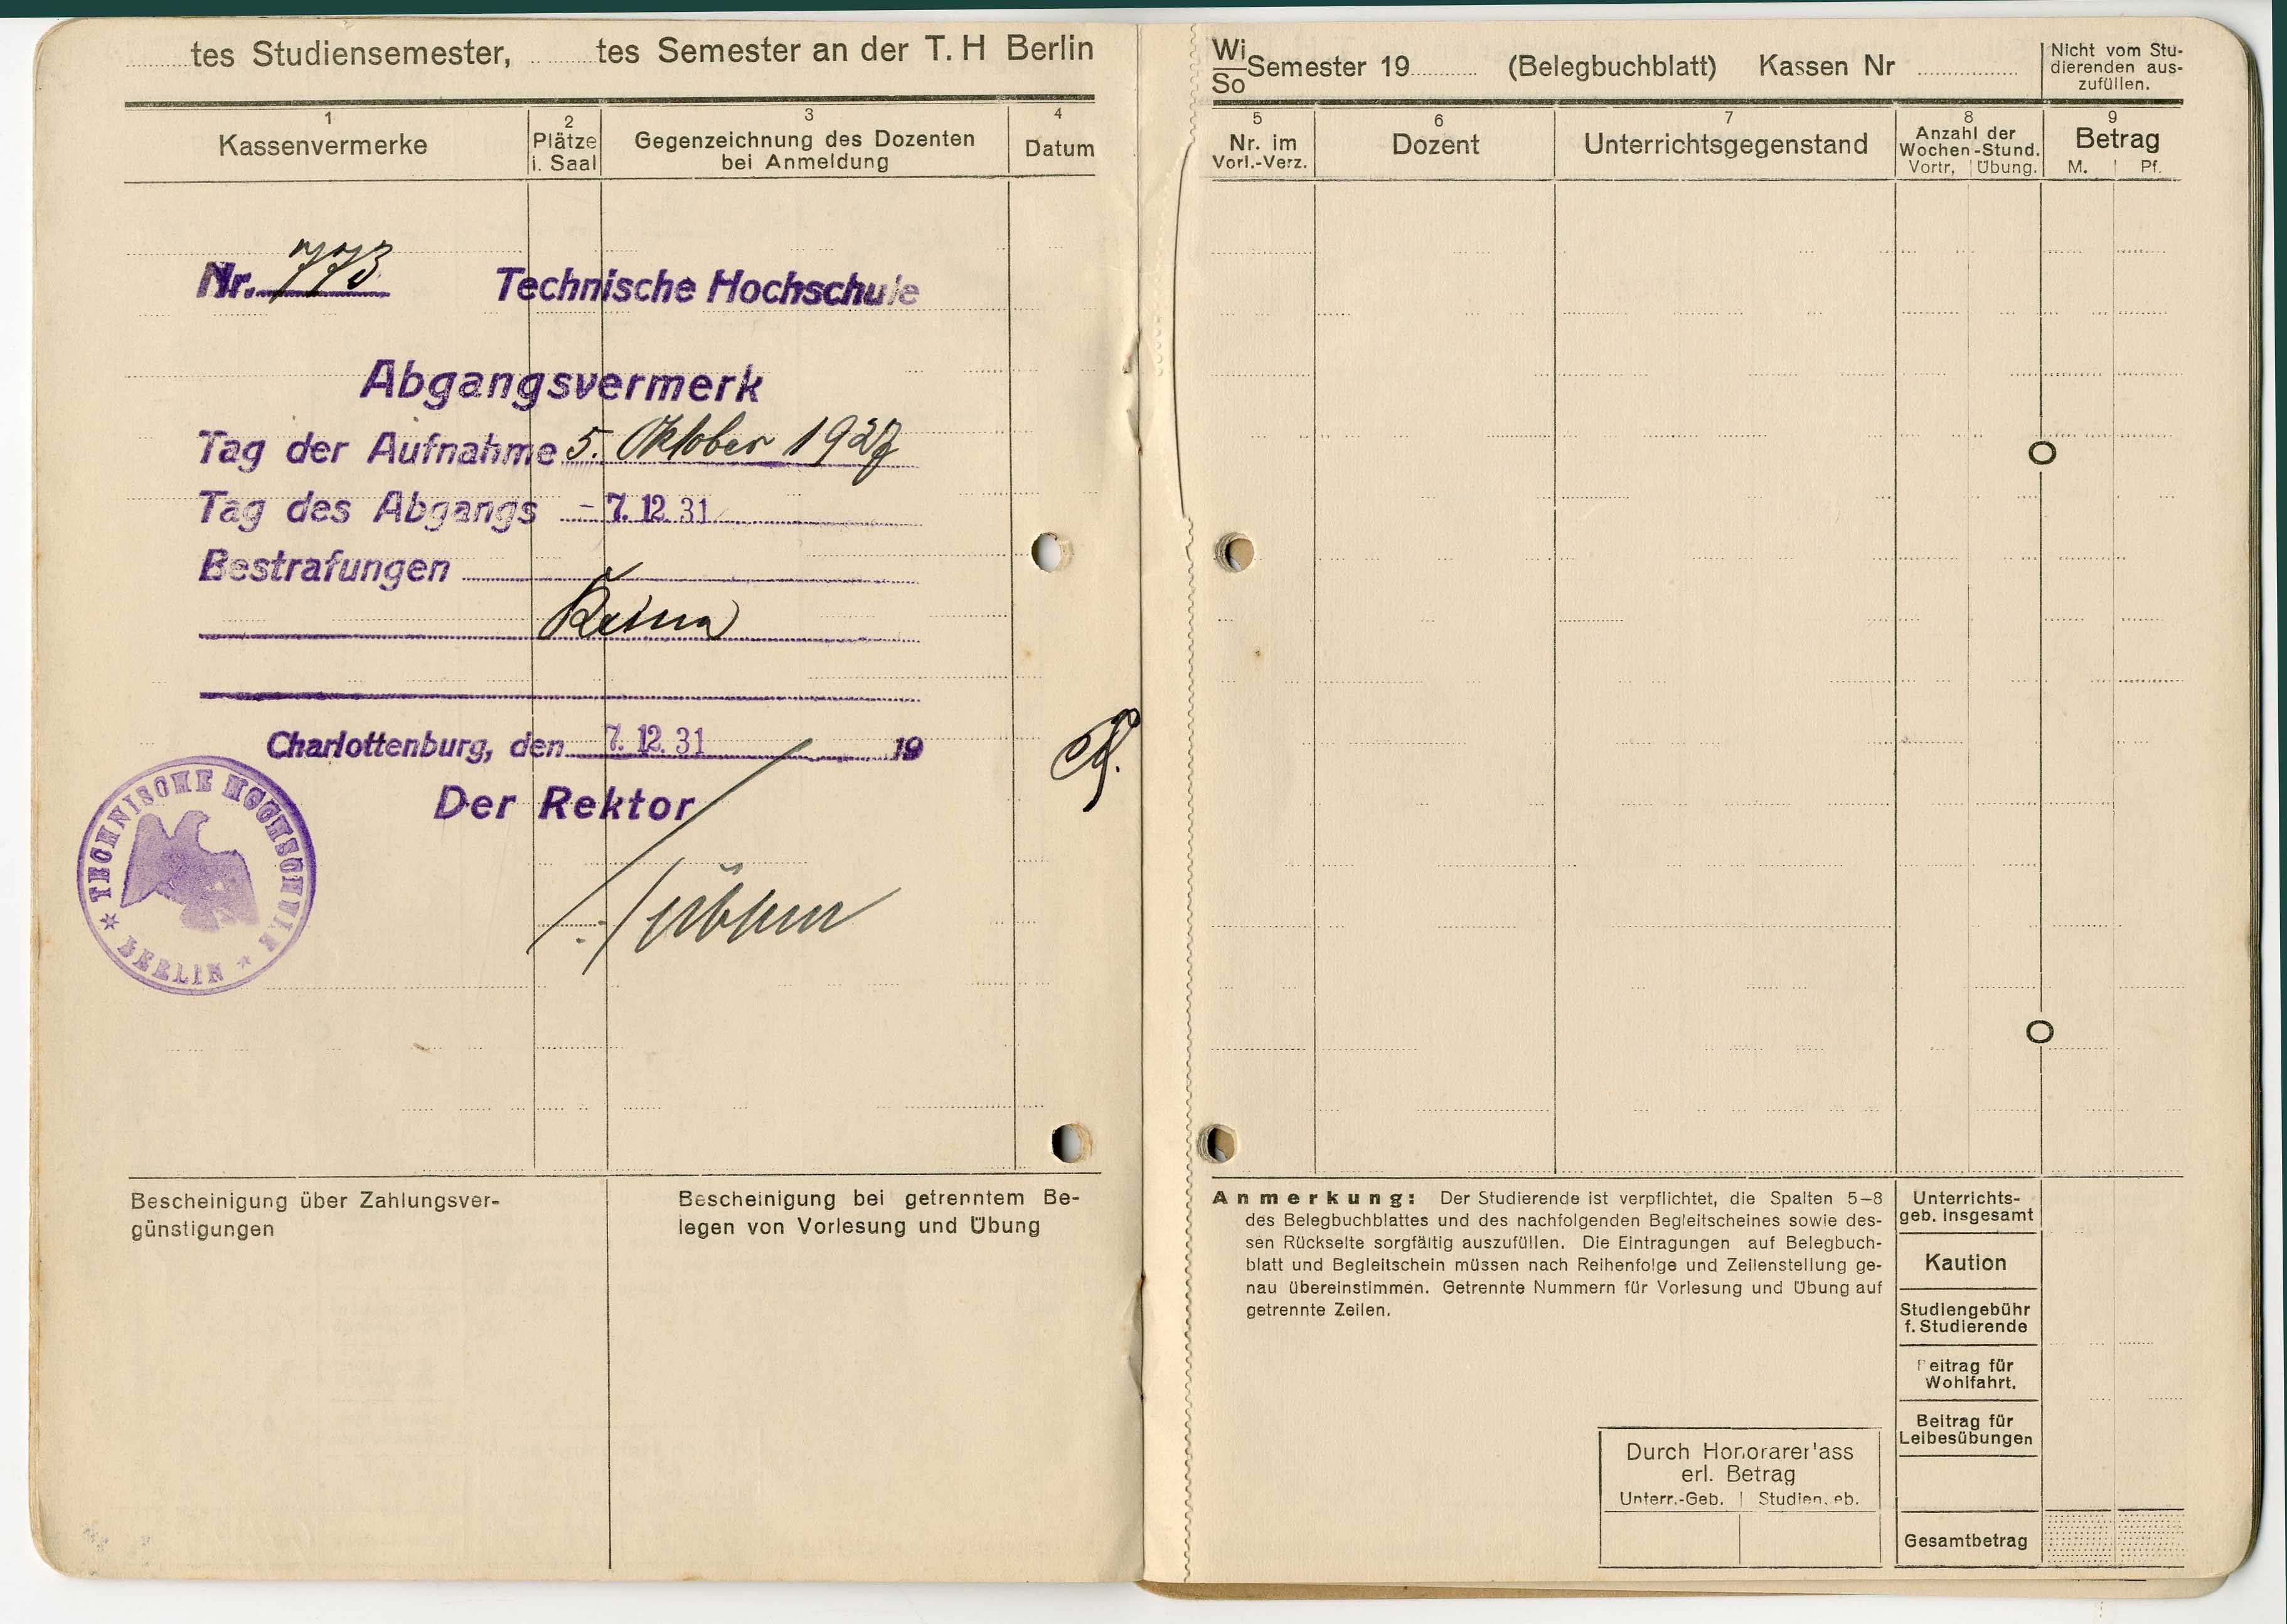 tes Studiensemester, tes Semester an der T. H Berlin
1
Kassenvermerke
2
Plätze
i. Saal
3
Gegenzeichnung des Dozenten
bei Anmeldung
4
Datum
Nr. 773
Technische Hochschule
Abgangsvermerk
Tag der Aufnahme 5. Oktober 1927
Tag des Abgangs - 7. 12. 31
Bestrafungen
Keine
Charlottenburg, den 7. 12. 31 19
Der Rektor
TECHNISCHE HOCHSCHULE
* BERLIN *
Bescheinigung über Zahlungsver-
günstigungen
Bescheinigung bei getrenntem Be-
legen von Vorlesung und Übung
Wi
So Semester 19 (Belegbuchblatt) Kassen Nr
Nicht vom Stu-
dierenden aus-
zufüllen.
5
Nr. im
Vorl.-Verz.
6
Dozent
7
Unterrichtsgegenstand
8
Anzahl der
Wochen-Stund.
Vortr, Übung.
9
Betrag
M. Pf.
Anmerkung: Der Studierende ist verpflichtet, die Spalten 5-8
des Belegbuchblattes und des nachfolgenden Begleitscheines sowie des-
sen Rückseite sorgfältig auszufüllen. Die Eintragungen auf Belegbuch-
blatt und Begleitschein müssen nach Reihenfolge und Zeilenstellung ge-
nau übereinstimmen. Getrennte Nummern für Vorlesung und Übung auf
getrennte Zeilen.
Unterrichts-
geb. insgesamt
Kaution
Studiengebühr
f. Studierende
Beitrag für
Wohlfahrt.
Beitrag für
Leibesübungen
Gesamtbetrag
Durch Honorarerlass
erl. Betrag
Unterr.-Geb. Studiengeb.